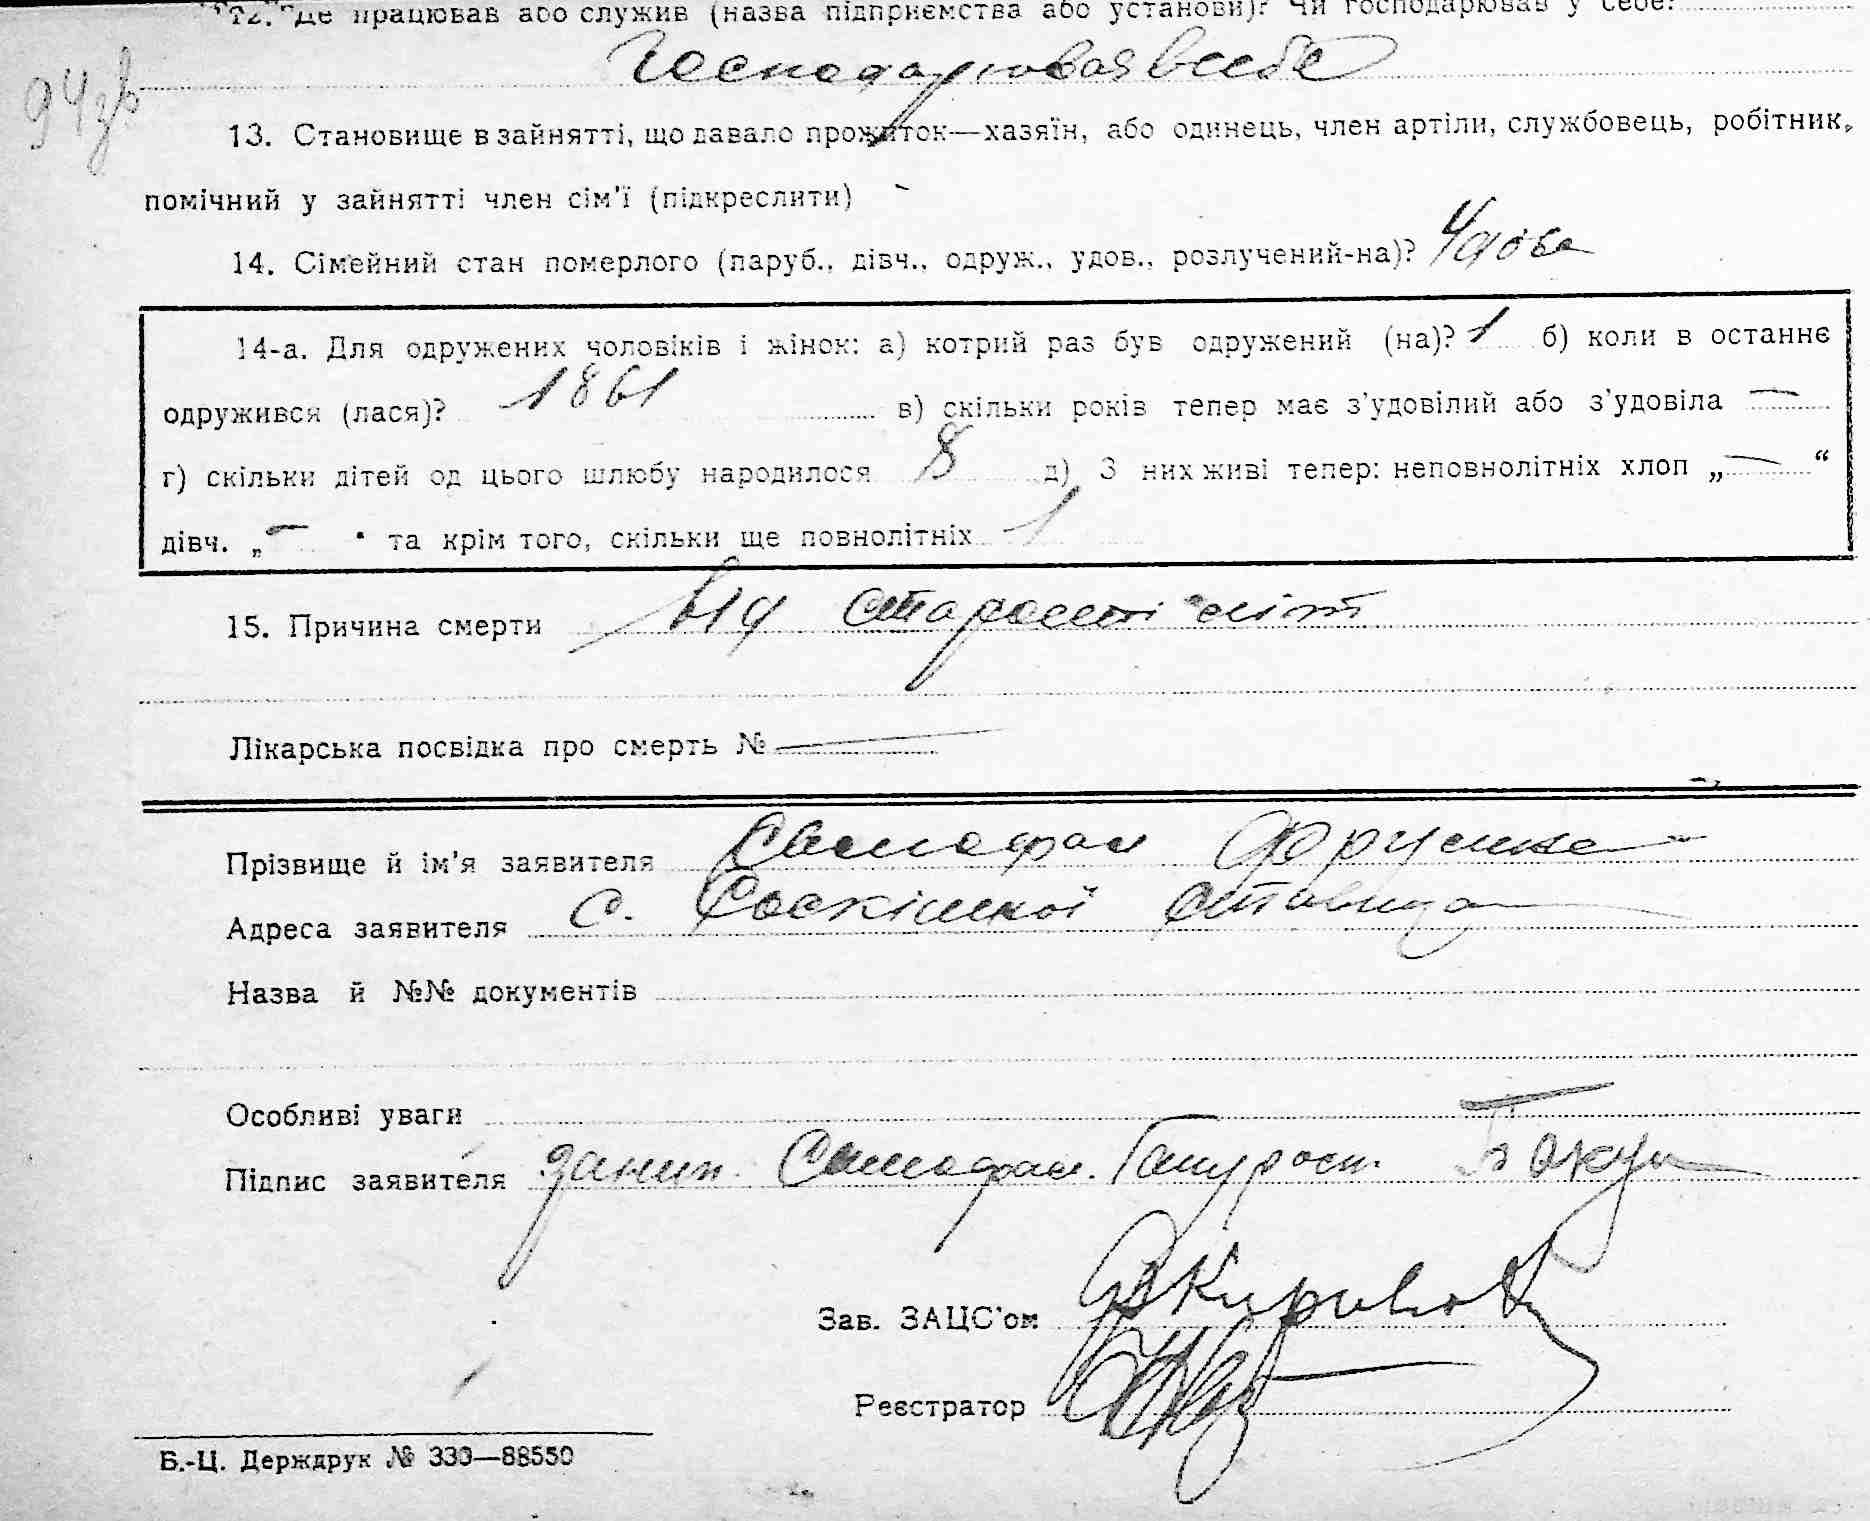 12. Де працював або служив (назва підприємства або установи)? Чи господарював у себе?
Господарював в себе
94зв
13. Становище в зайнятті, що давало прожиток—хазяїн, або одинець, член артіли, службовець, робітник,
помічний у зайнятті член сім'ї (підкреслити)
14. Сімейний стан померлого (паруб., дівч., одруж., удов., розлучений-на)? Удова
14-а. Для одружених чоловіків і жінок: а) котрий раз був одружений (на)? 1 б) коли в останнє
одружився (лася)? 1861 в) скільки років тепер має з'удовілий або з'удовіла —
г) скільки дітей од цього шлюбу народилося 8 д) З них живі тепер: неповнолітніх хлоп „—“
дівч. „— " та крім того, скільки ще повнолітніх 1
15. Причина смерти від старости літ
Лікарська посвідка про смерть № —
Прізвище й ім'я заявителя
Адреса заявителя с. Ставища
Назва й №№ документів
Особливі уваги
Підпис заявителя
Зав. ЗАЦС'ом
Реєстратор
Б.-Ц. Держдрук № 330—88550